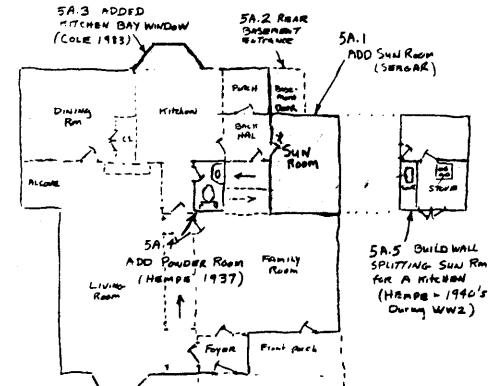 5A.3 ADDED
KITCHEN BAY WINDOW
(COLE 1983)
5A.2 REAR
BASEMENT
ENTRANCE
5A.1
ADD SUN ROOM
(SEAGAR)
DINING
RM
CL
KITCHEN
PORCH
BASE-
MENT
DOOR
BACK
HAL
SUN
ROOM
ALCOVE
STOVE
5A.4
ADD POWDER ROOM
(HEMPE 1937)
LIVING
ROOM
FAMILY
ROOM
FOYER
Front porch
5A.5 BUILD WALL
SPLITTING SUN RM
FOR A KITCHEN
(HEMPE - 1940's
During WW2)